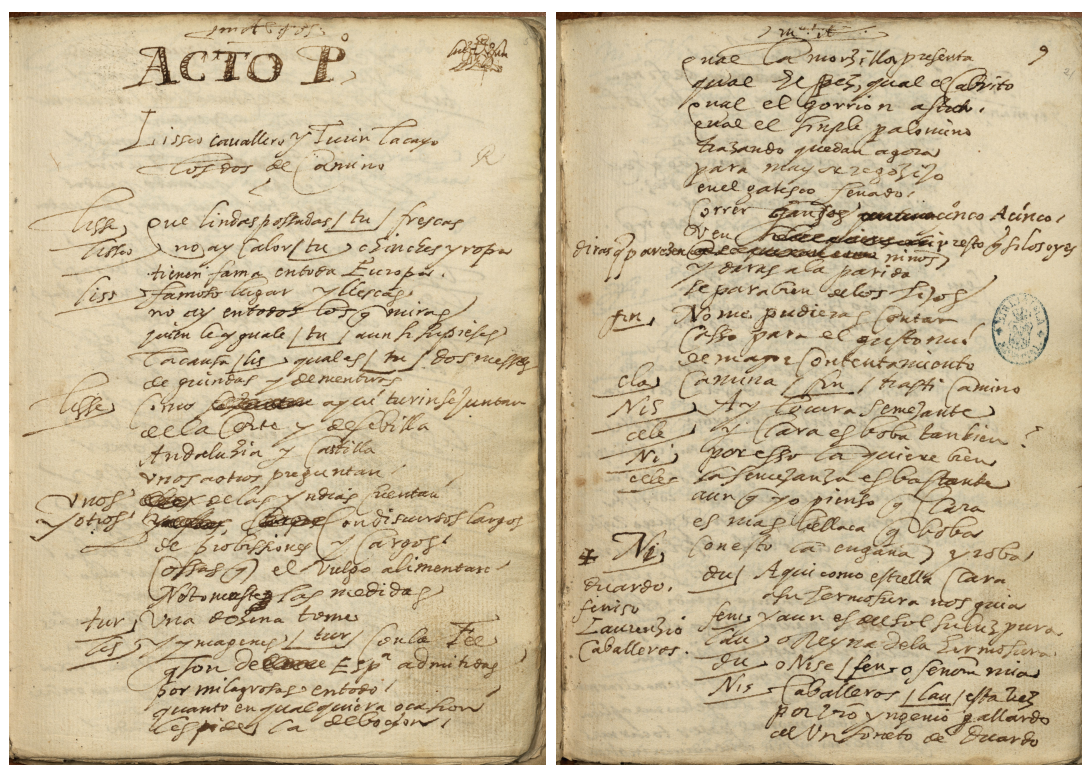 ACTO P.º
Lisseo cavallero y Turin lacayo
los dos de Camino
lisse que lindas possadas / tu / frescas
lisseo no ay calor / tu chinches y ropa
tienen fama en toda Europa.
liss famoso lugar yllescas
no ay en todos los q miras
quien le yguale / tu / aun si supieses
la causa / lis qual es / tu / dos meses
de guindas y de mentiras
lisse Como aqui turin se juntan
de la Corte y de sebilla
Andaluzia y Castilla
unos a otros preguntan
unos de las yndias quentan
y otros Con discursos largos
de probissiones y Cargos
Cossas q el vulgo alimentan
No tomaste las medidas
tur Una dozina tome
lis y ymagenes / tur / Con la Fee
q son de Espª admitidas
por milagrosas en todo
quanto en qualquiera ocasion
les pide la deboçion
9
qual la morzilla presenta
qual el pez, qual el Cabrito
qual el gorrion
qual el simple palomino
trazando quedan agora
para mayor regozijo
en el gatesco senado
Correr gansos cinco a cinco
ven presto q si los oyes
diras q parezen niños
y daras a la parida
el parabien de los hijos
fin, No me pudieras Contar
Casso para el gusto mio
de mayor Contentamiento
cla Camina / fin / tras ti Camino
Nis Ay locura semejante
cele y Clara es boba tanbien?
Ni por esso la quiere bien
cele la semejanza es bastante
aun q yo pienso q Clara
es mas bellaca q boba
Ni, Con esto la engaña y roba
duardo.
feniso
Laurenzio
Caballeros.
du / Aqui como estrella Clara
a su hermosura nos guia
feni y aun es del sol su luz pura
lau o Reyna de la hermosura
du o Nise / fen o señora mia
Nis Caballeros / lau / esta vez
por vro yngenio gallardo
de Un soneto de Duardo